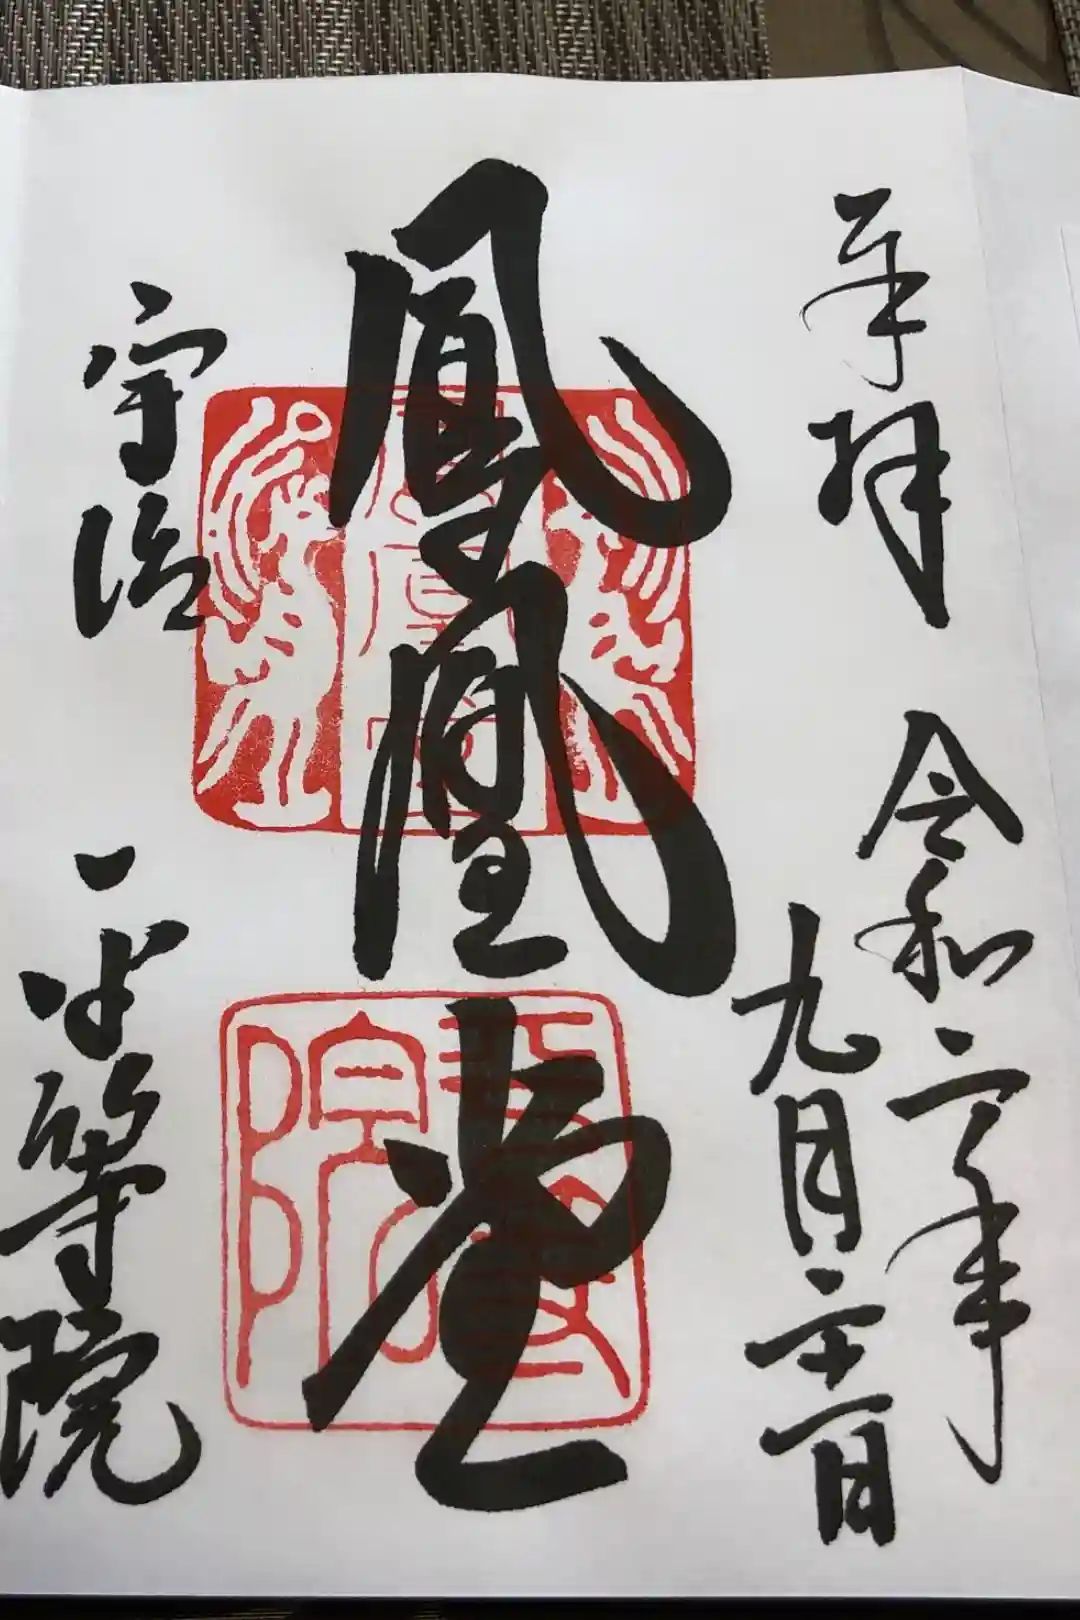 奉拝
令和二年
九月二十一日
鳳凰堂
宇治
平等院